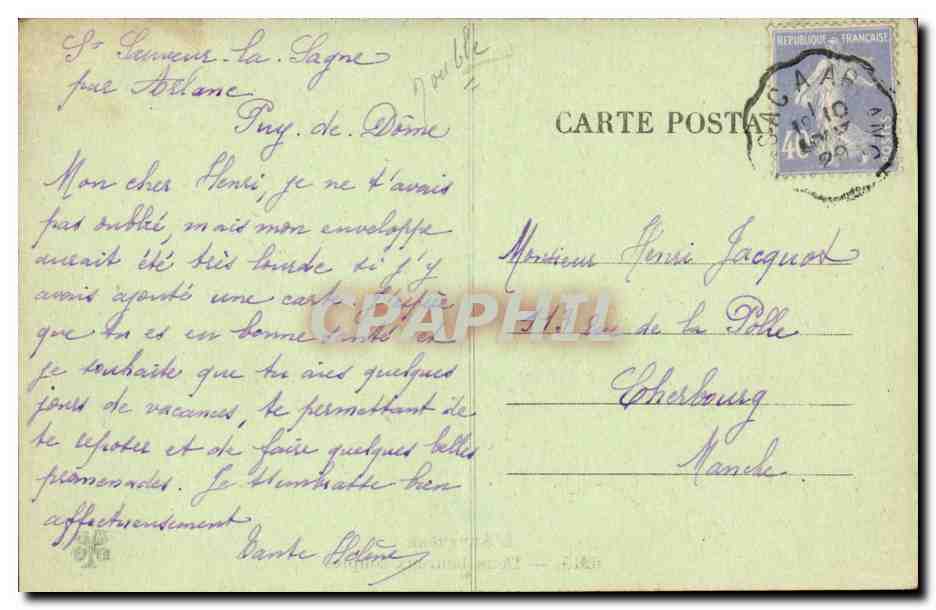 St Sauveur-la-Sagne
par Arlanc
Puy-de-Dôme
Mon cher Henri, je ne t'avais
pas oublié, mais mon enveloppe
aurait été très lourde si j'y
avais ajouté une carte. J'espère
que tu es en bonne santé et
je souhaite que tu aies quelques
jours de vacances, te permettant de
te reposer et de faire quelques belles
promenades. Je t'embrasse bien
affectueusement
Tante Hélène
Double
CARTE POSTA
REPUBLIQUE FRANÇAISE
40
Monsieur Henri Jacquot
de la Polle
Cherbourg
Manche
CPAPHIL